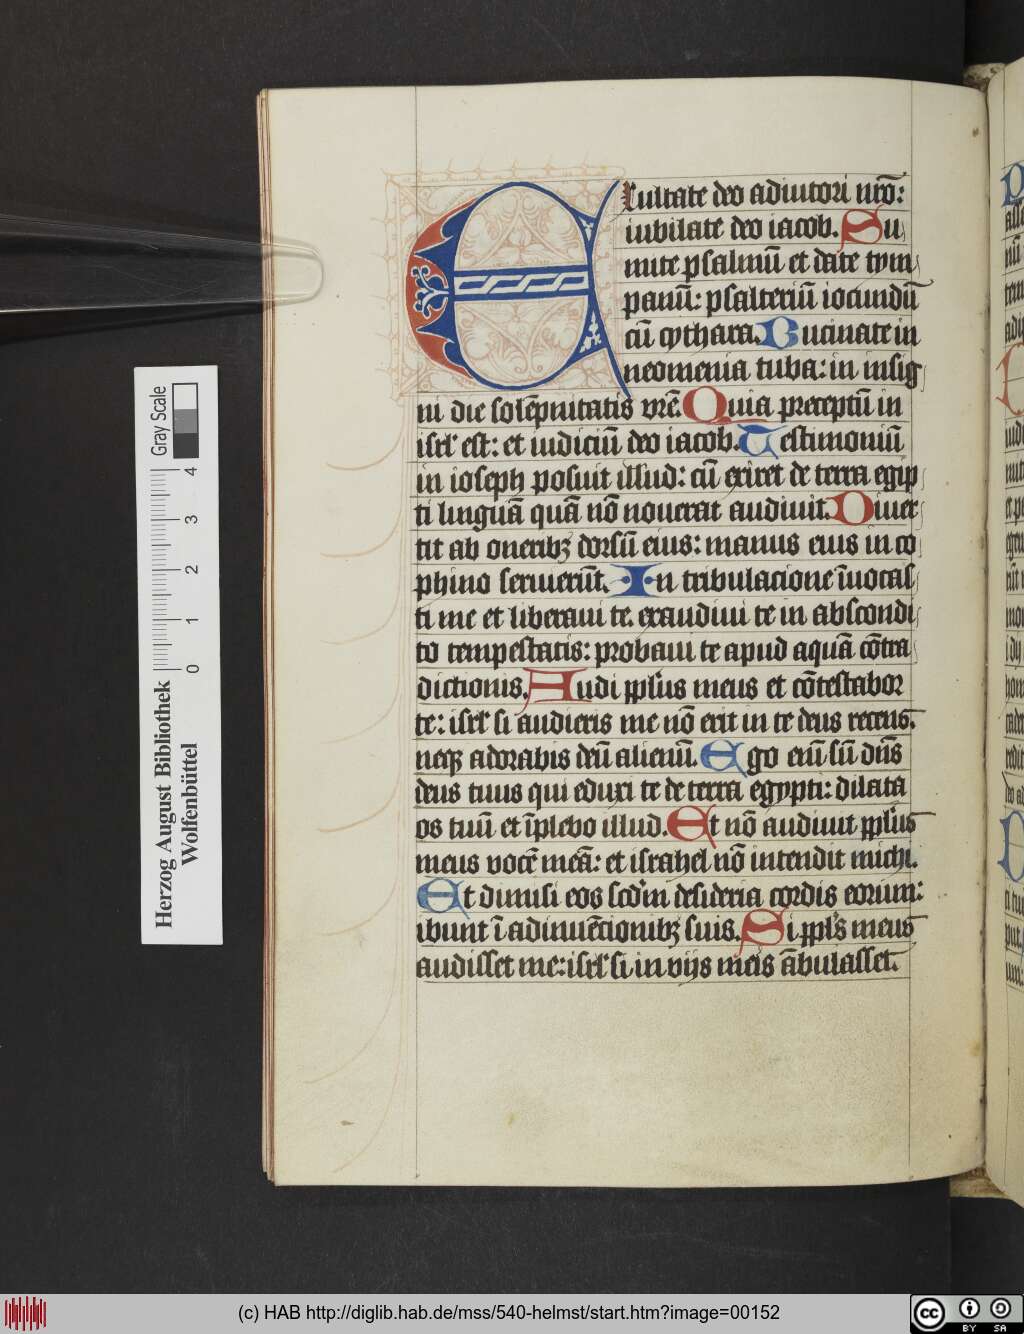 Exultate deo adiutori nr̄o:
iubilate deo iacob. Su
mite psalmū et date tym
panū: psalteriū iocundū
cū cythara. Bucinate in
neomenia tuba: in insig
ni die solēpnitatis vr̄e Quia preceptū in
isrl' est: et iudiciū deo iacob. Testimoniū
in ioseph posuit illud: cū exiret de terra egip
ti linguā quā nō nouerat audiuit. Diuer
tit ab oneribꝫ dorsū eius: manus eius in co
phino seruierūt. In tribulacione īuocas
ti me et liberaui te. exaudiui te in abscondi
to tempestatis: probaui te apud aquā cōtra
dictionis. Audi ppl'us meus et cōtestabor
te: isrl' si audieris me nō erit in te deus recens.
neqꝫ adorabis deū alienū. Ego eni͞ su͞ dn͞s
deus tuus qui eduxi te de terra egypti: dilata
os tuū et īplebo illud. Et nō audiuit ppl'us
meus vocē meā: et israhel nō intendit michi.
Et dimisi eos scd'm desideria cordis eorum:
ibunt ī adinuētionibꝫ suis. Si ppl's meus
audisset me: isrl' si in vijs meis ābulasset.
Herzog August Bibliothek
Wolfenbüttel
0 1 2 3 4
Gray Scale
(c) HAB http://diglib.hab.de/mss/540-helmst/start.htm?image=00152
cc BY SA